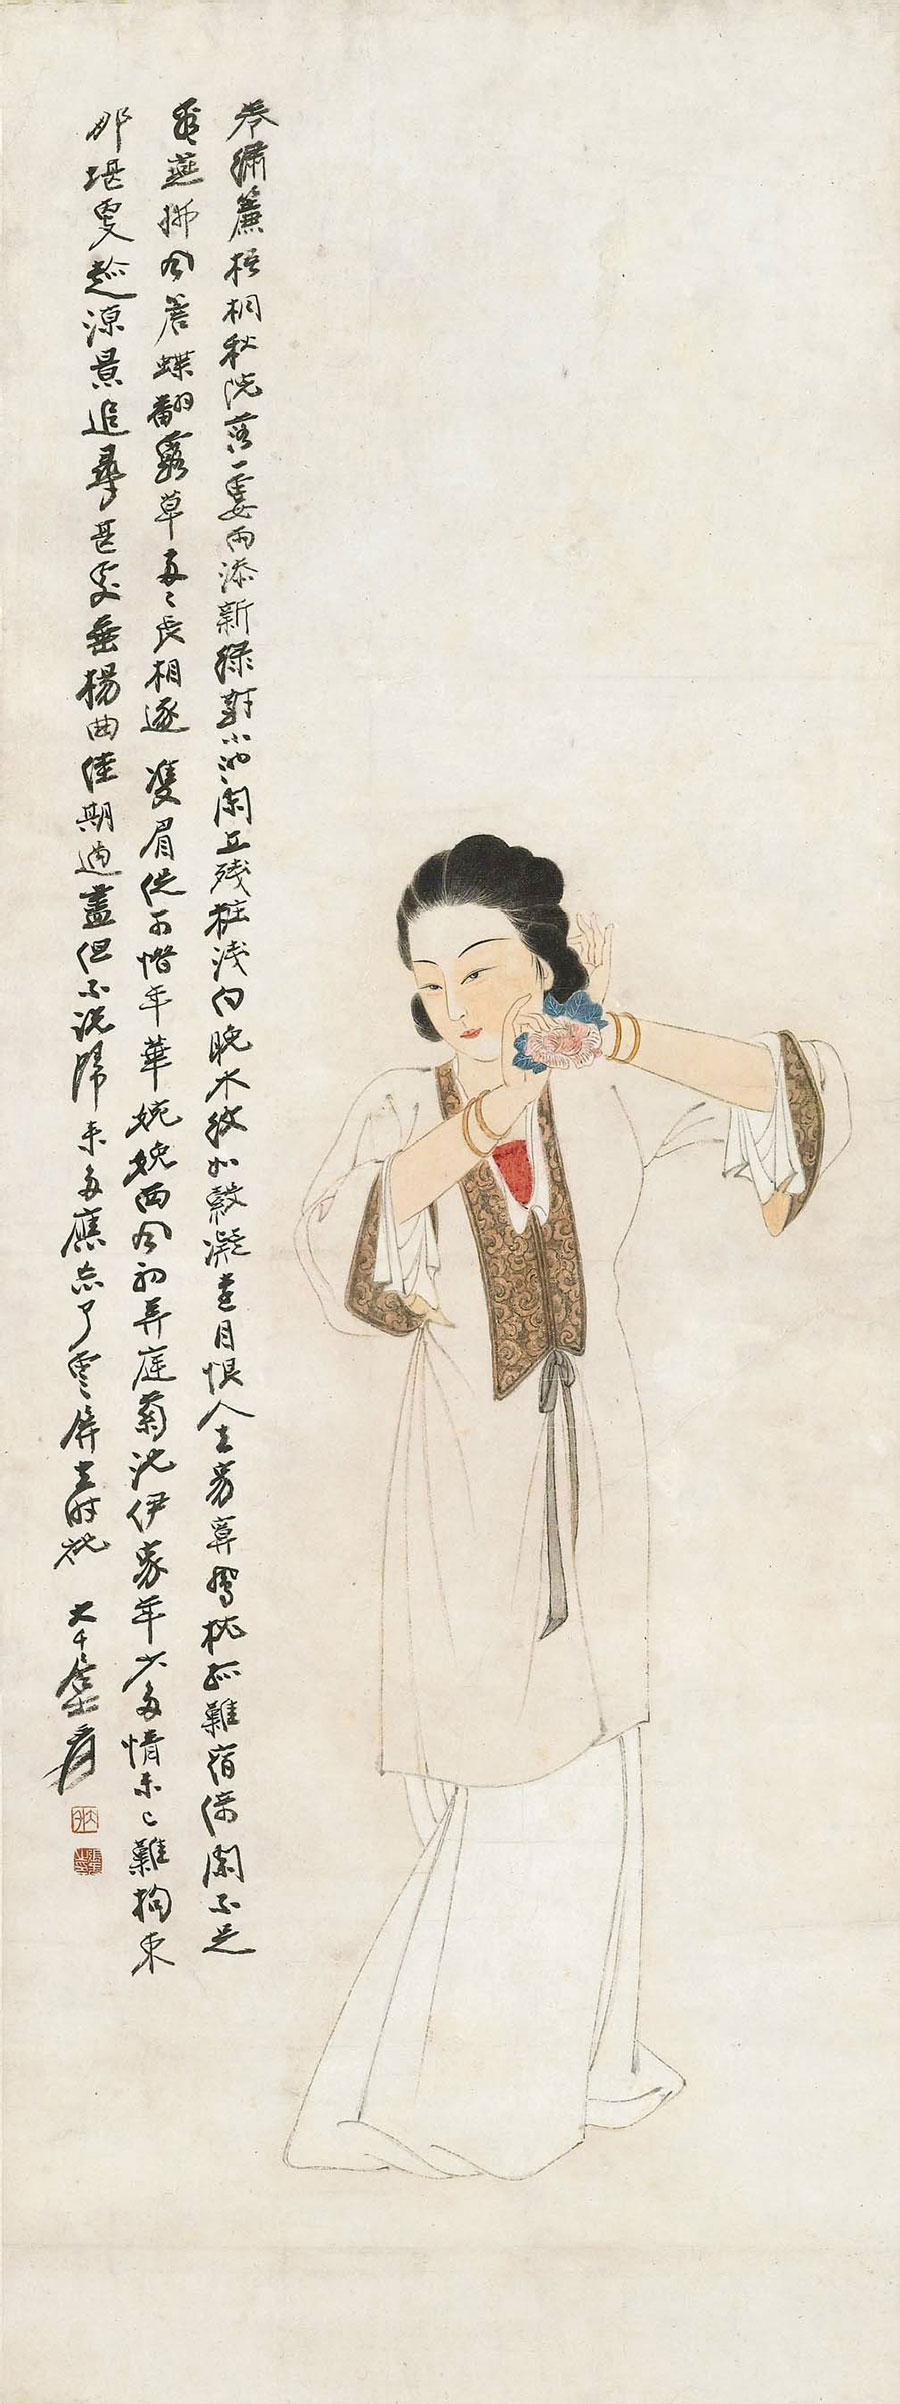 卷繡簾梧桐秋院落一霎雨添新綠對小池闌立殘粧淺向晚水紋如縠凝遠目恨人去鳳枕孤難宿倚闌不足
看燕拂風簷蝶翻露草兩〻長相逐 雙眉促可惜年華婉娩西風初弄庭菊況伊家年少多情未已難拘束
那堪更趁涼景追尋甚處垂楊曲佳期過盡但不說歸來多應忘了雲屏去時祝 大千居士爰